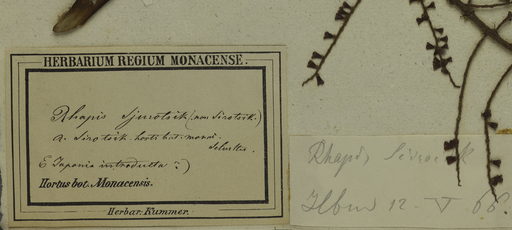 HERBARIUM REGIUM MONACENSE.
Rhapis Sjurotsik (non Sirotsik.)
a. Sirotsik horti bot. monac.
E Japonia introducta?)
Hortus bot. Monacensis.
Herbar. Kummer.
Rhapis
12 - V 66.